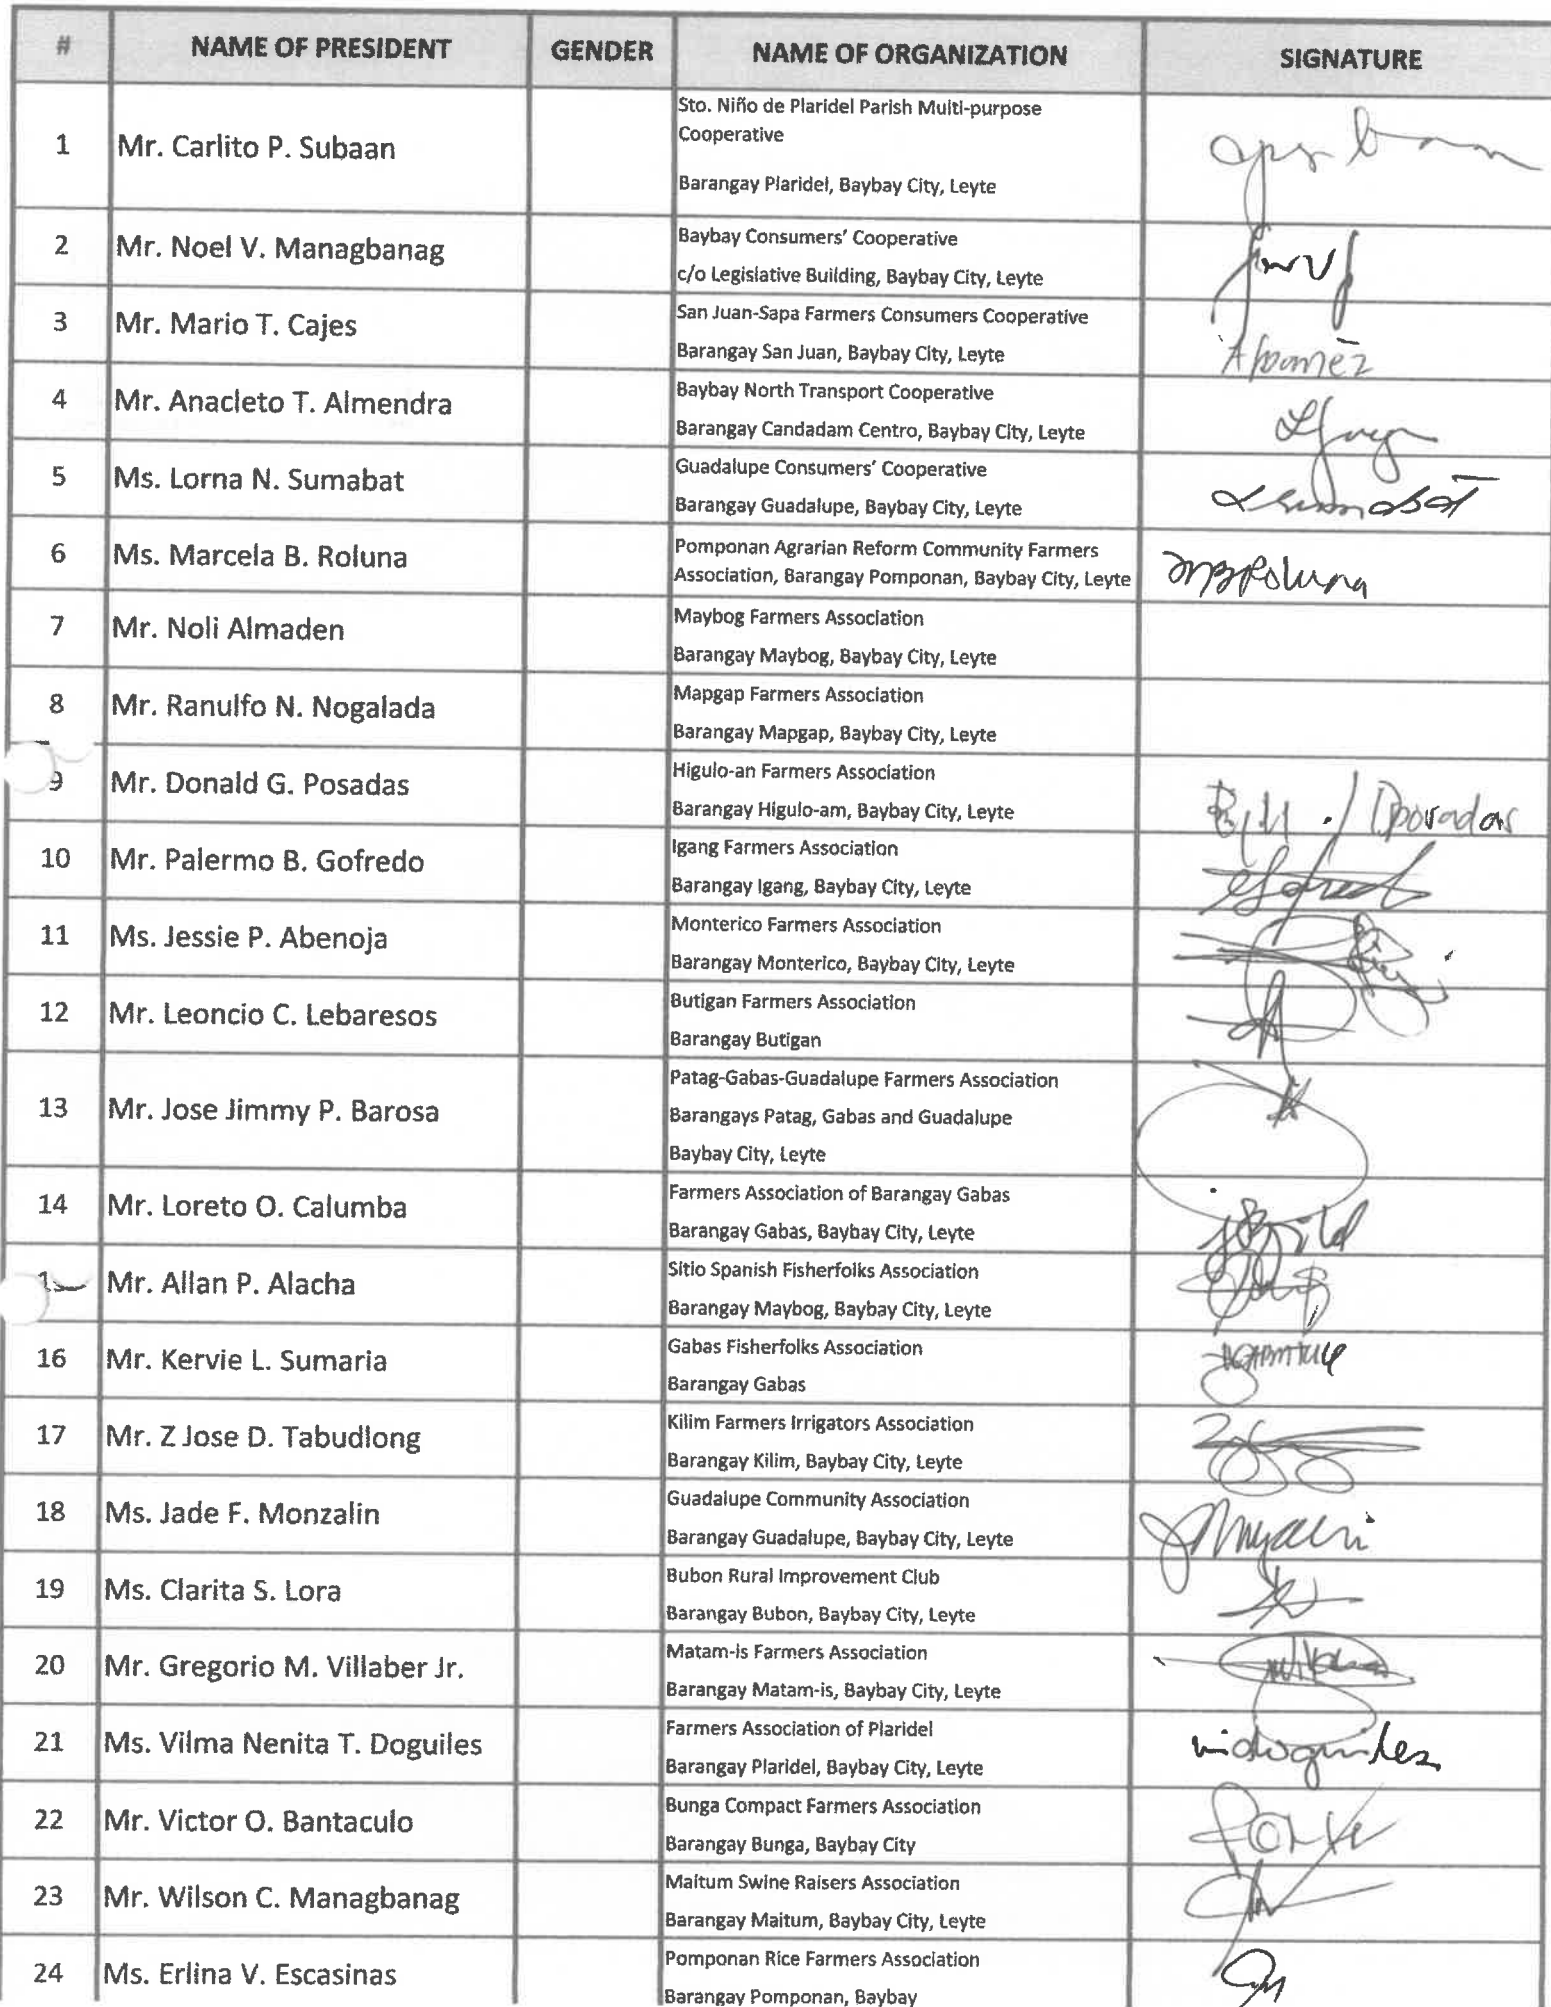 # NAME OF PRESIDENT GENDER NAME OF ORGANIZATION SIGNATURE
1 Mr. Carlito P. Subaan
Sto. Niño de Plaridel Parish Multi-purpose
Cooperative
Barangay Plaridel, Baybay City, Leyte
2 Mr. Noel V. Managbanag
Baybay Consumers' Cooperative
c/o Legislative Building, Baybay City, Leyte
3 Mr. Mario T. Cajes
San Juan-Sapa Farmers Consumers Cooperative
Barangay San Juan, Baybay City, Leyte
4 Mr. Anacleto T. Almendra
Baybay North Transport Cooperative
Barangay Candadam Centro, Baybay City, Leyte
5 Ms. Lorna N. Sumabat
Guadalupe Consumers' Cooperative
Barangay Guadalupe, Baybay City, Leyte
6 Ms. Marcela B. Roluna
Pomponan Agrarian Reform Community Farmers
Association, Barangay Pomponan, Baybay City, Leyte
MBRoluna
7 Mr. Noli Almaden
Maybog Farmers Association
Barangay Maybog, Baybay City, Leyte
8 Mr. Ranulfo N. Nogalada
Mapgap Farmers Association
Barangay Mapgap, Baybay City, Leyte
9 Mr. Donald G. Posadas
Higulo-an Farmers Association
Barangay Higulo-am, Baybay City, Leyte
10 Mr. Palermo B. Gofredo
Igang Farmers Association
Barangay Igang, Baybay City, Leyte
11 Ms. Jessie P. Abenoja
Monterico Farmers Association
Barangay Monterico, Baybay City, Leyte
12 Mr. Leoncio C. Lebaresos
Butigan Farmers Association
Barangay Butigan
13 Mr. Jose Jimmy P. Barosa
Patag-Gabas-Guadalupe Farmers Association
Barangays Patag, Gabas and Guadalupe
Baybay City, Leyte
14 Mr. Loreto O. Calumba
Farmers Association of Barangay Gabas
Barangay Gabas, Baybay City, Leyte
Mr. Allan P. Alacha
Sitio Spanish Fisherfolks Association
Barangay Maybog, Baybay City, Leyte
16 Mr. Kervie L. Sumaria
Gabas Fisherfolks Association
Barangay Gabas
17 Mr. Z Jose D. Tabudlong
Kilim Farmers Irrigators Association
Barangay Kilim, Baybay City, Leyte
18 Ms. Jade F. Monzalin
Guadalupe Community Association
Barangay Guadalupe, Baybay City, Leyte
19 Ms. Clarita S. Lora
Bubon Rural Improvement Club
Barangay Bubon, Baybay City, Leyte
20 Mr. Gregorio M. Villaber Jr.
Matam-is Farmers Association
Barangay Matam-is, Baybay City, Leyte
21 Ms. Vilma Nenita T. Doguiles
Farmers Association of Plaridel
Barangay Plaridel, Baybay City, Leyte
22 Mr. Victor O. Bantaculo
Bunga Compact Farmers Association
Barangay Bunga, Baybay City
23 Mr. Wilson C. Managbanag
Maitum Swine Raisers Association
Barangay Maitum, Baybay City, Leyte
24 Ms. Erlina V. Escasinas
Pomponan Rice Farmers Association
Barangay Pomponan, Baybay